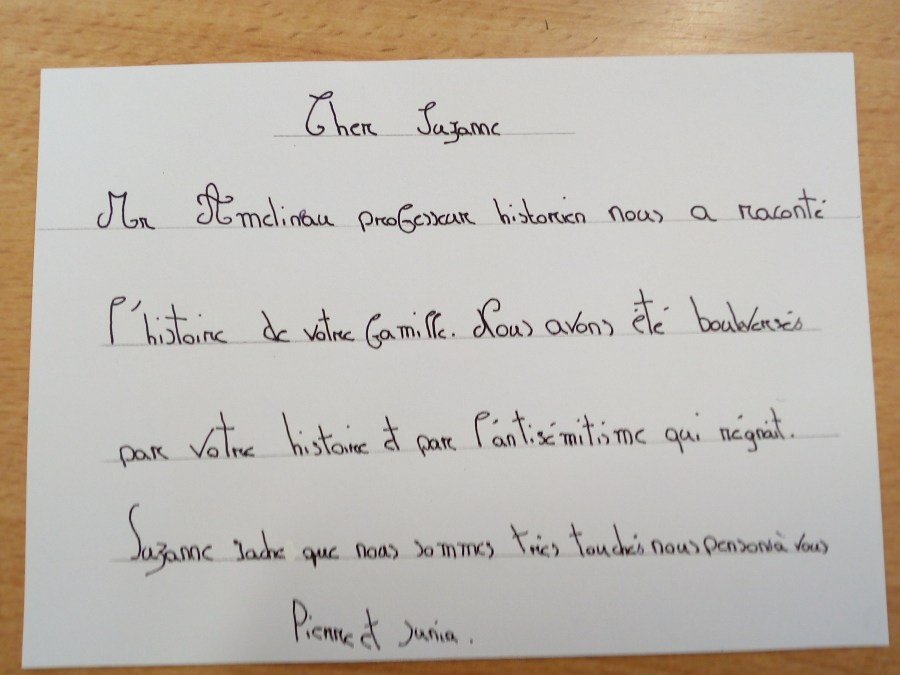 Cher Suzanne
Mr Amelinau professeur historien nous a raconté
l'histoire de votre famille. Nous avons été boulversés
par votre histoire et par l'antisémitisme qui régnait.
Suzanne sache que nous sommes très touchés nous pensons à vous
Pierre et Junia.